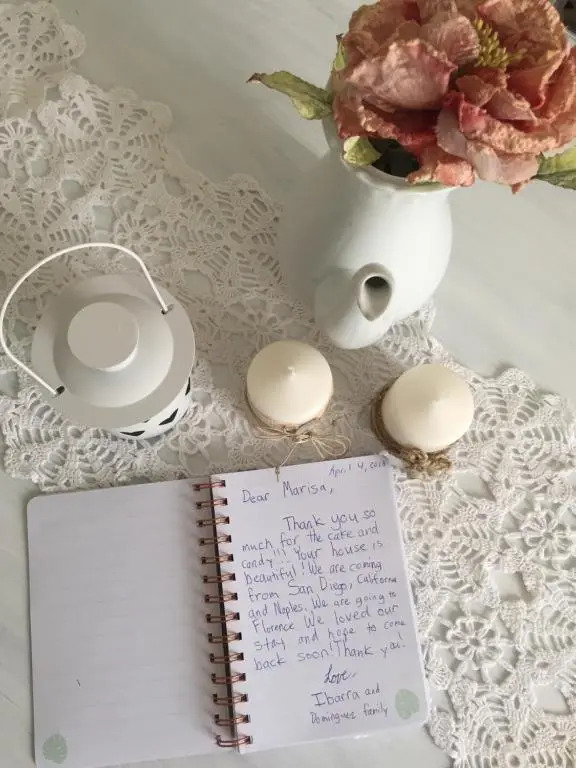 April 4, 2018
Dear Marisa,
Thank you so
much for the cake and
candy!!! Your house is
beautiful! We are coming
from San Diego, California
and Naples. We are going to
Florence We loved our
stay and hope to come
back soon! Thank you!
Love,
Ibarra and
Dominguez family